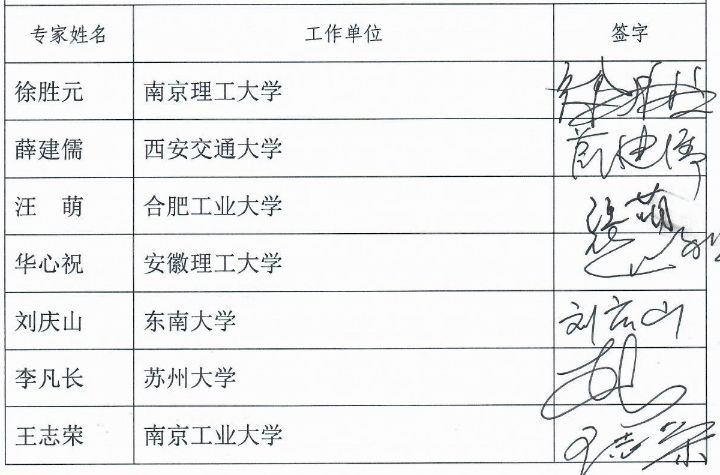 专家姓名 工作单位 签字
徐胜元 南京理工大学
薛建儒 西安交通大学 薛建儒
汪 萌 合肥工业大学 汪萌
华心祝 安徽理工大学
刘庆山 东南大学 刘庆山
李凡长 苏州大学
王志荣 南京工业大学 王志荣